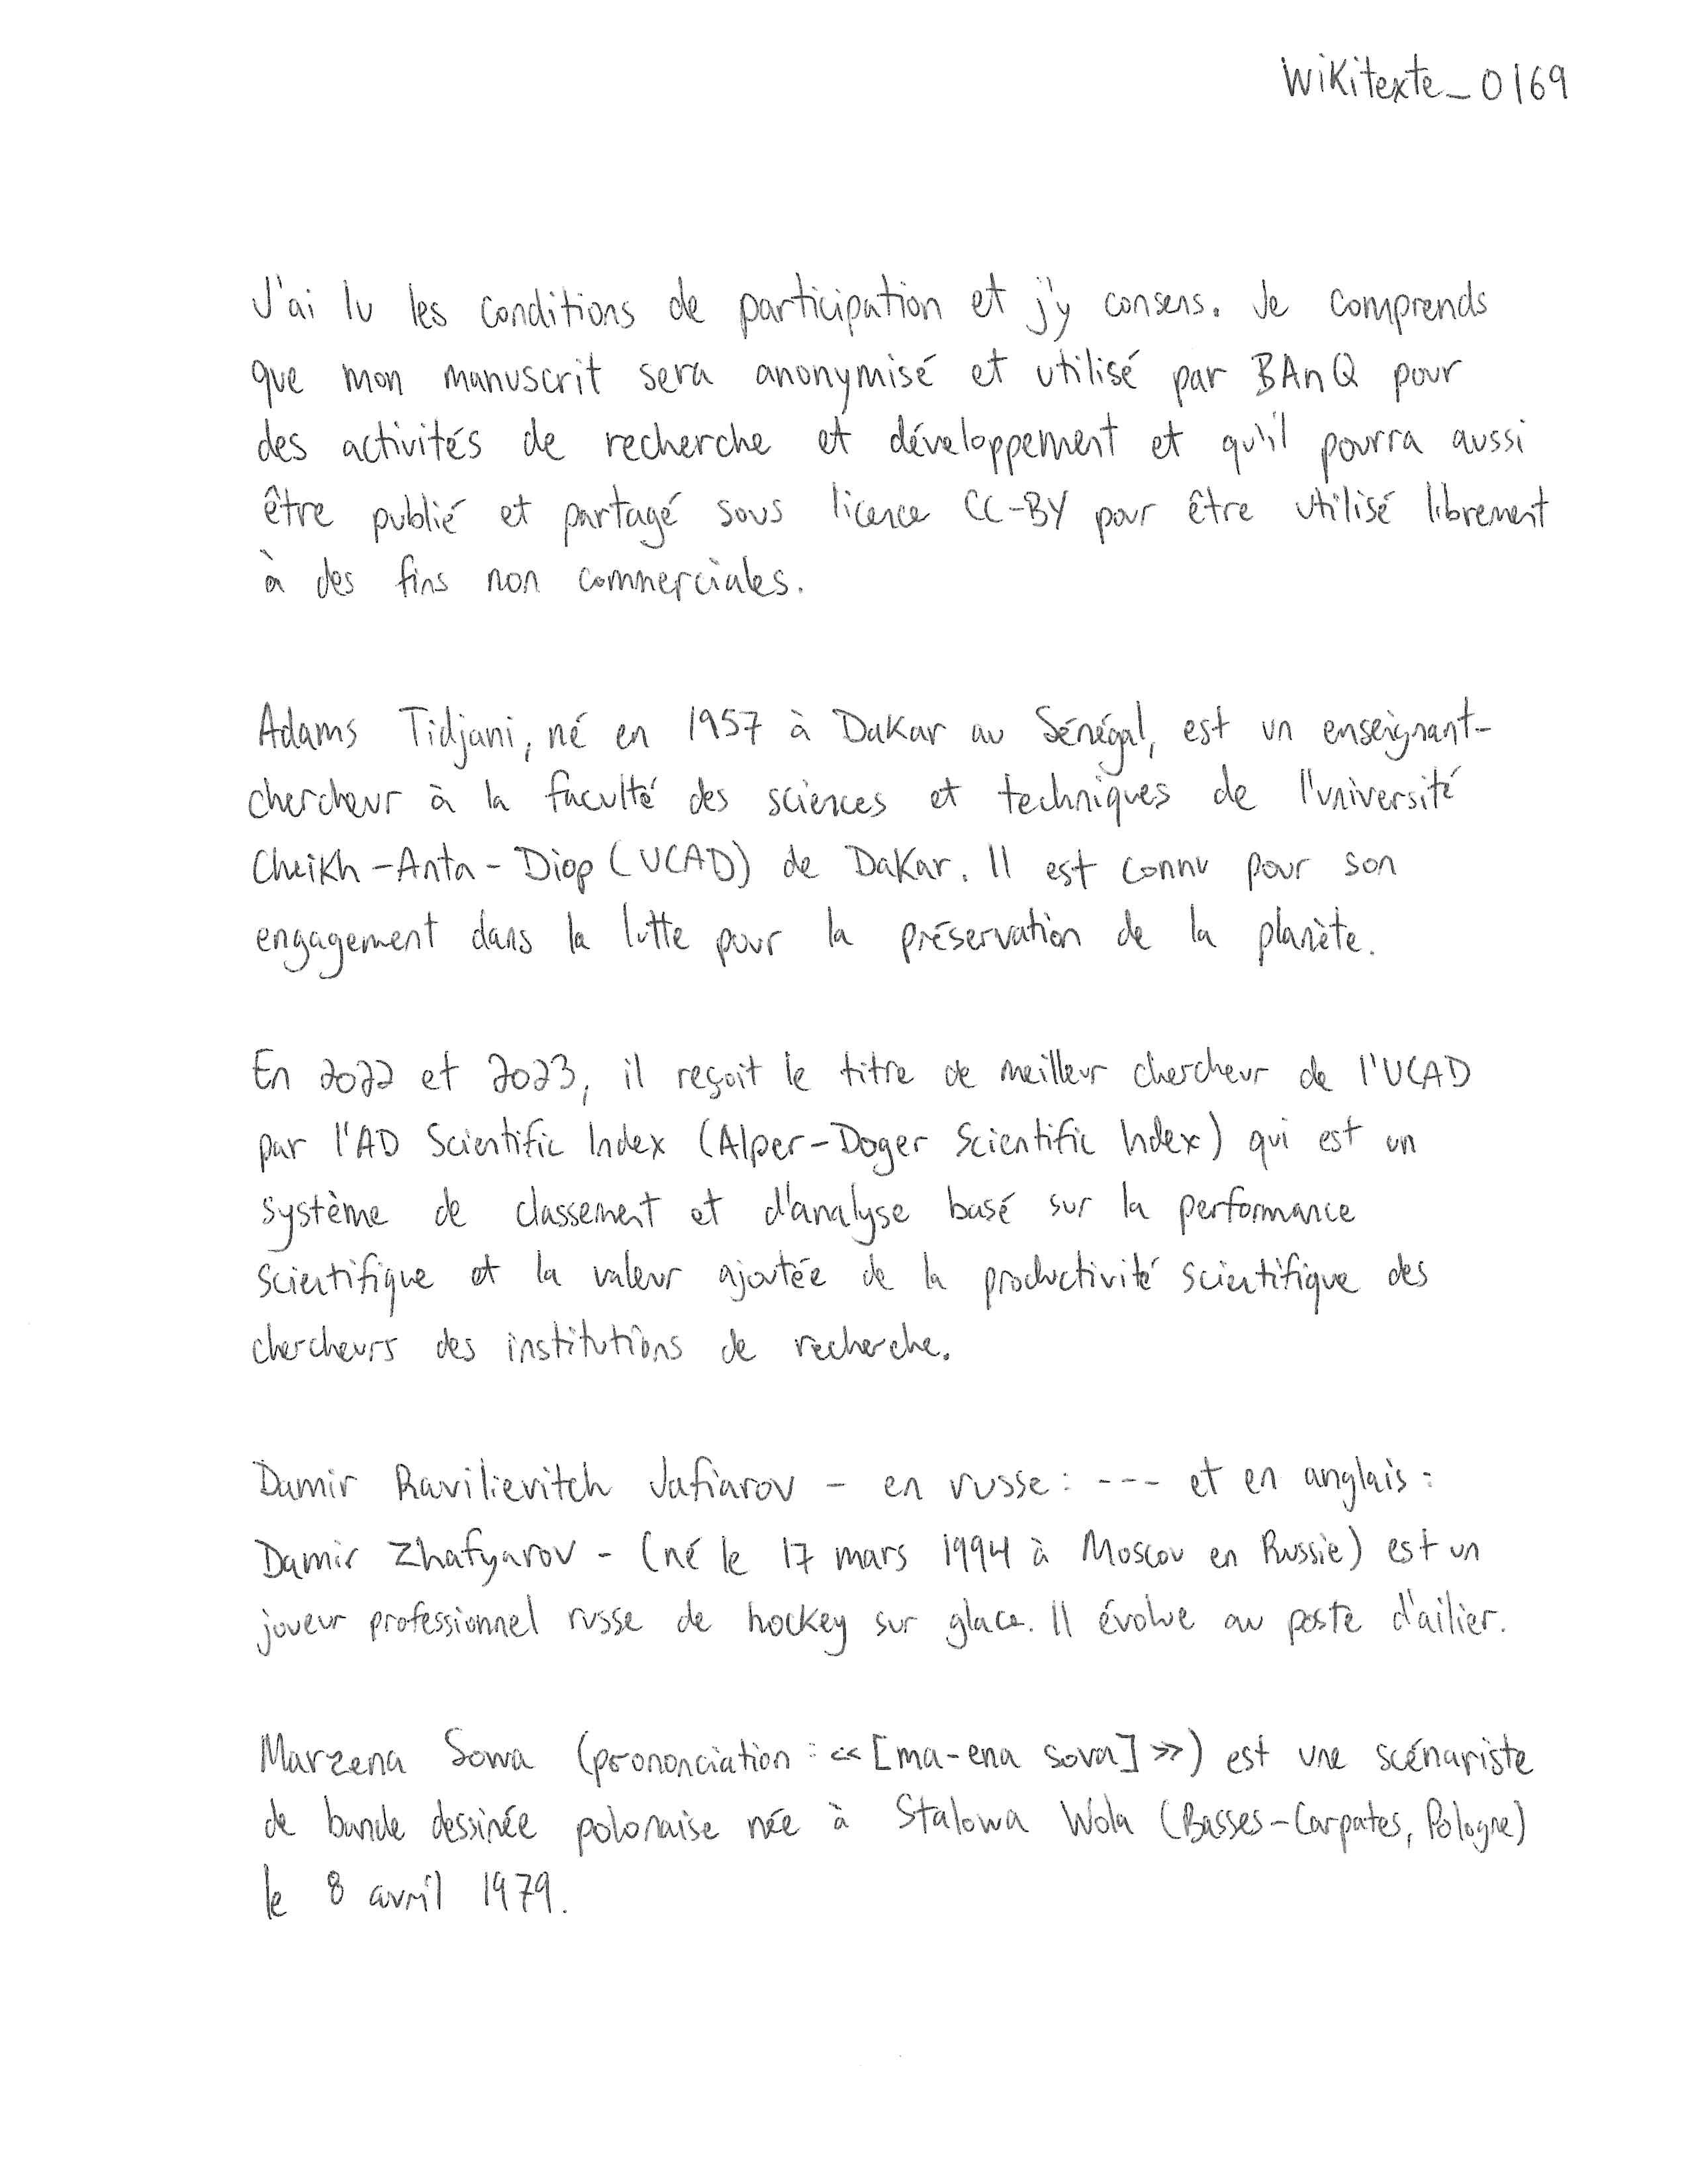 Wikitexte_0169
J'ai lu les conditions de participation et j'y consens. Je comprends
que mon manuscrit sera anonymisé et utilisé par BAnQ pour
des activités de recherche et développement et qu'il pourra aussi
être publié et partagé sous licence CC-BY pour être utilisé librement
à des fins non commerciales.
Adams Tidjani, né en 1957 à Dakar au Sénégal, est un enseignant-
chercheur à la faculté des sciences et techniques de l'université
Cheikh-Anta-Diop (UCAD) de Dakar. Il est connu pour son
engagement dans la lutte pour la préservation de la planète.
En 2022 et 2023, il reçoit le titre de meilleur chercheur de l'UCAD
par l'AD Scientific Index (Alper-Doger Scientific Index) qui est un
système de classement et d'analyse basé sur la performance
scientifique et la valeur ajoutée de la productivité scientifique des
chercheurs des institutions de recherche.
Damir Ravilievitch Jafiarov - en russe : --- et en anglais :
Damir Zhafyarov - (né le 17 mars 1994 à Moscou en Russie) est un
joueur professionnel russe de hockey sur glace. Il évolue au poste d'ailier.
Marzena Sowa (prononciation : « [ma-ena sova] ») est une scénariste
de bande dessinée polonaise née à Stalowa Wola (Basses-Carpates, Pologne)
le 8 avril 1979.